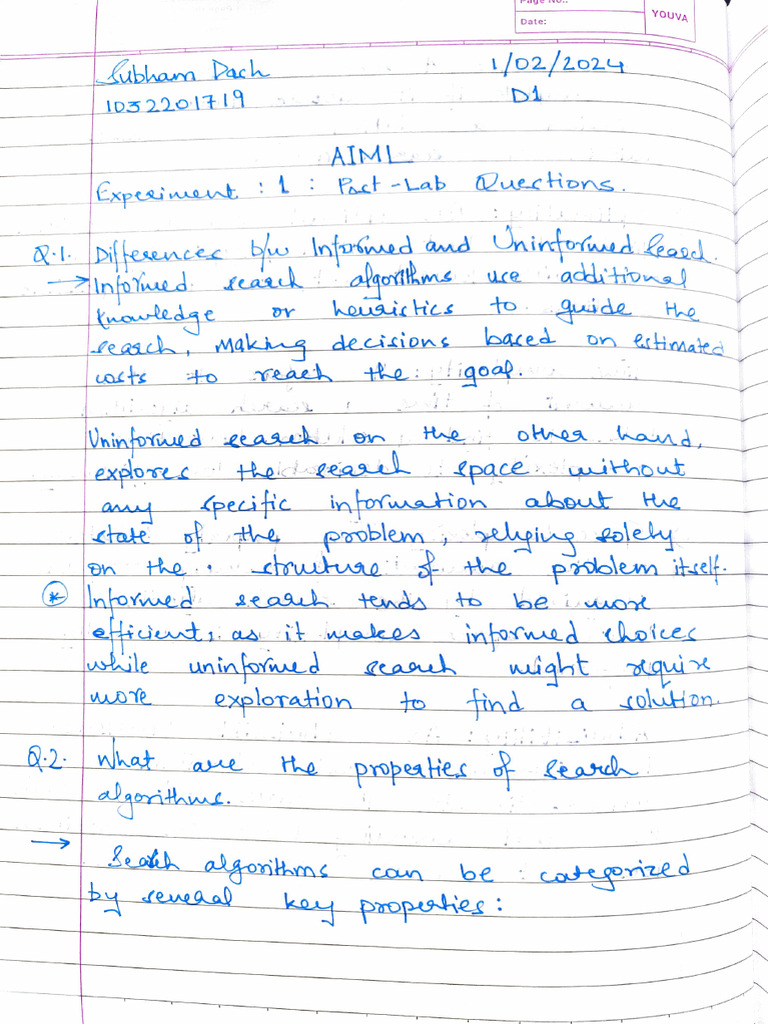 Page No.:
Date:
YOUVA
Subham Dach 1/02/2024
1032201719 D1
AIML
Experiment : 1 : Post-Lab Questions.
Q.1. Differences b/w Informed and Uninformed Search.
→ Informed search algorithms use additional
knowledge or heuristics to guide the
search, making decisions based on estimated
costs to reach the goal.
Uninformed search on the other hand,
explores the search space without
any specific information about the
state of the problem, relying solely
on the structure of the problem itself.
* Informed search tends to be more
efficient, as it makes informed choices
while uninformed search might require
more exploration to find a solution.
Q.2. What are the properties of search
algorithms.
→ Search algorithms can be categorized
by several key properties: